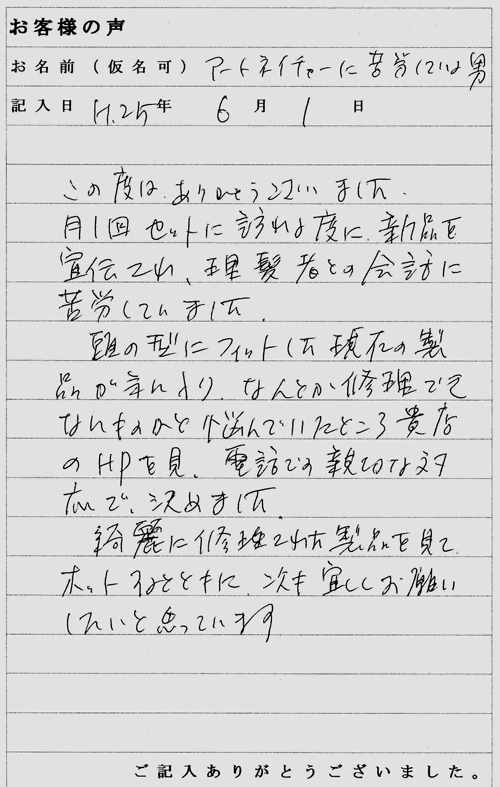 お客様の声
お名前（仮名可） アートネイチャーに苦労している男
記入日 H.25年 6月 1日
この度は、ありがとうございました。
月1回セットに訪れる度に、新品を
宣伝され、理髪者との会話に
苦労していました。
頭の型にフィットした現在の製
品が気に入り、なんとか修理でき
ないものかと悩んでいたところ貴店
のHPを見、電話での親切な対
応で、決めました。
綺麗に修理された製品を見て、
ホットするとともに、次も宜しくお願い
したいと思っています
ご記入ありがとうございました。